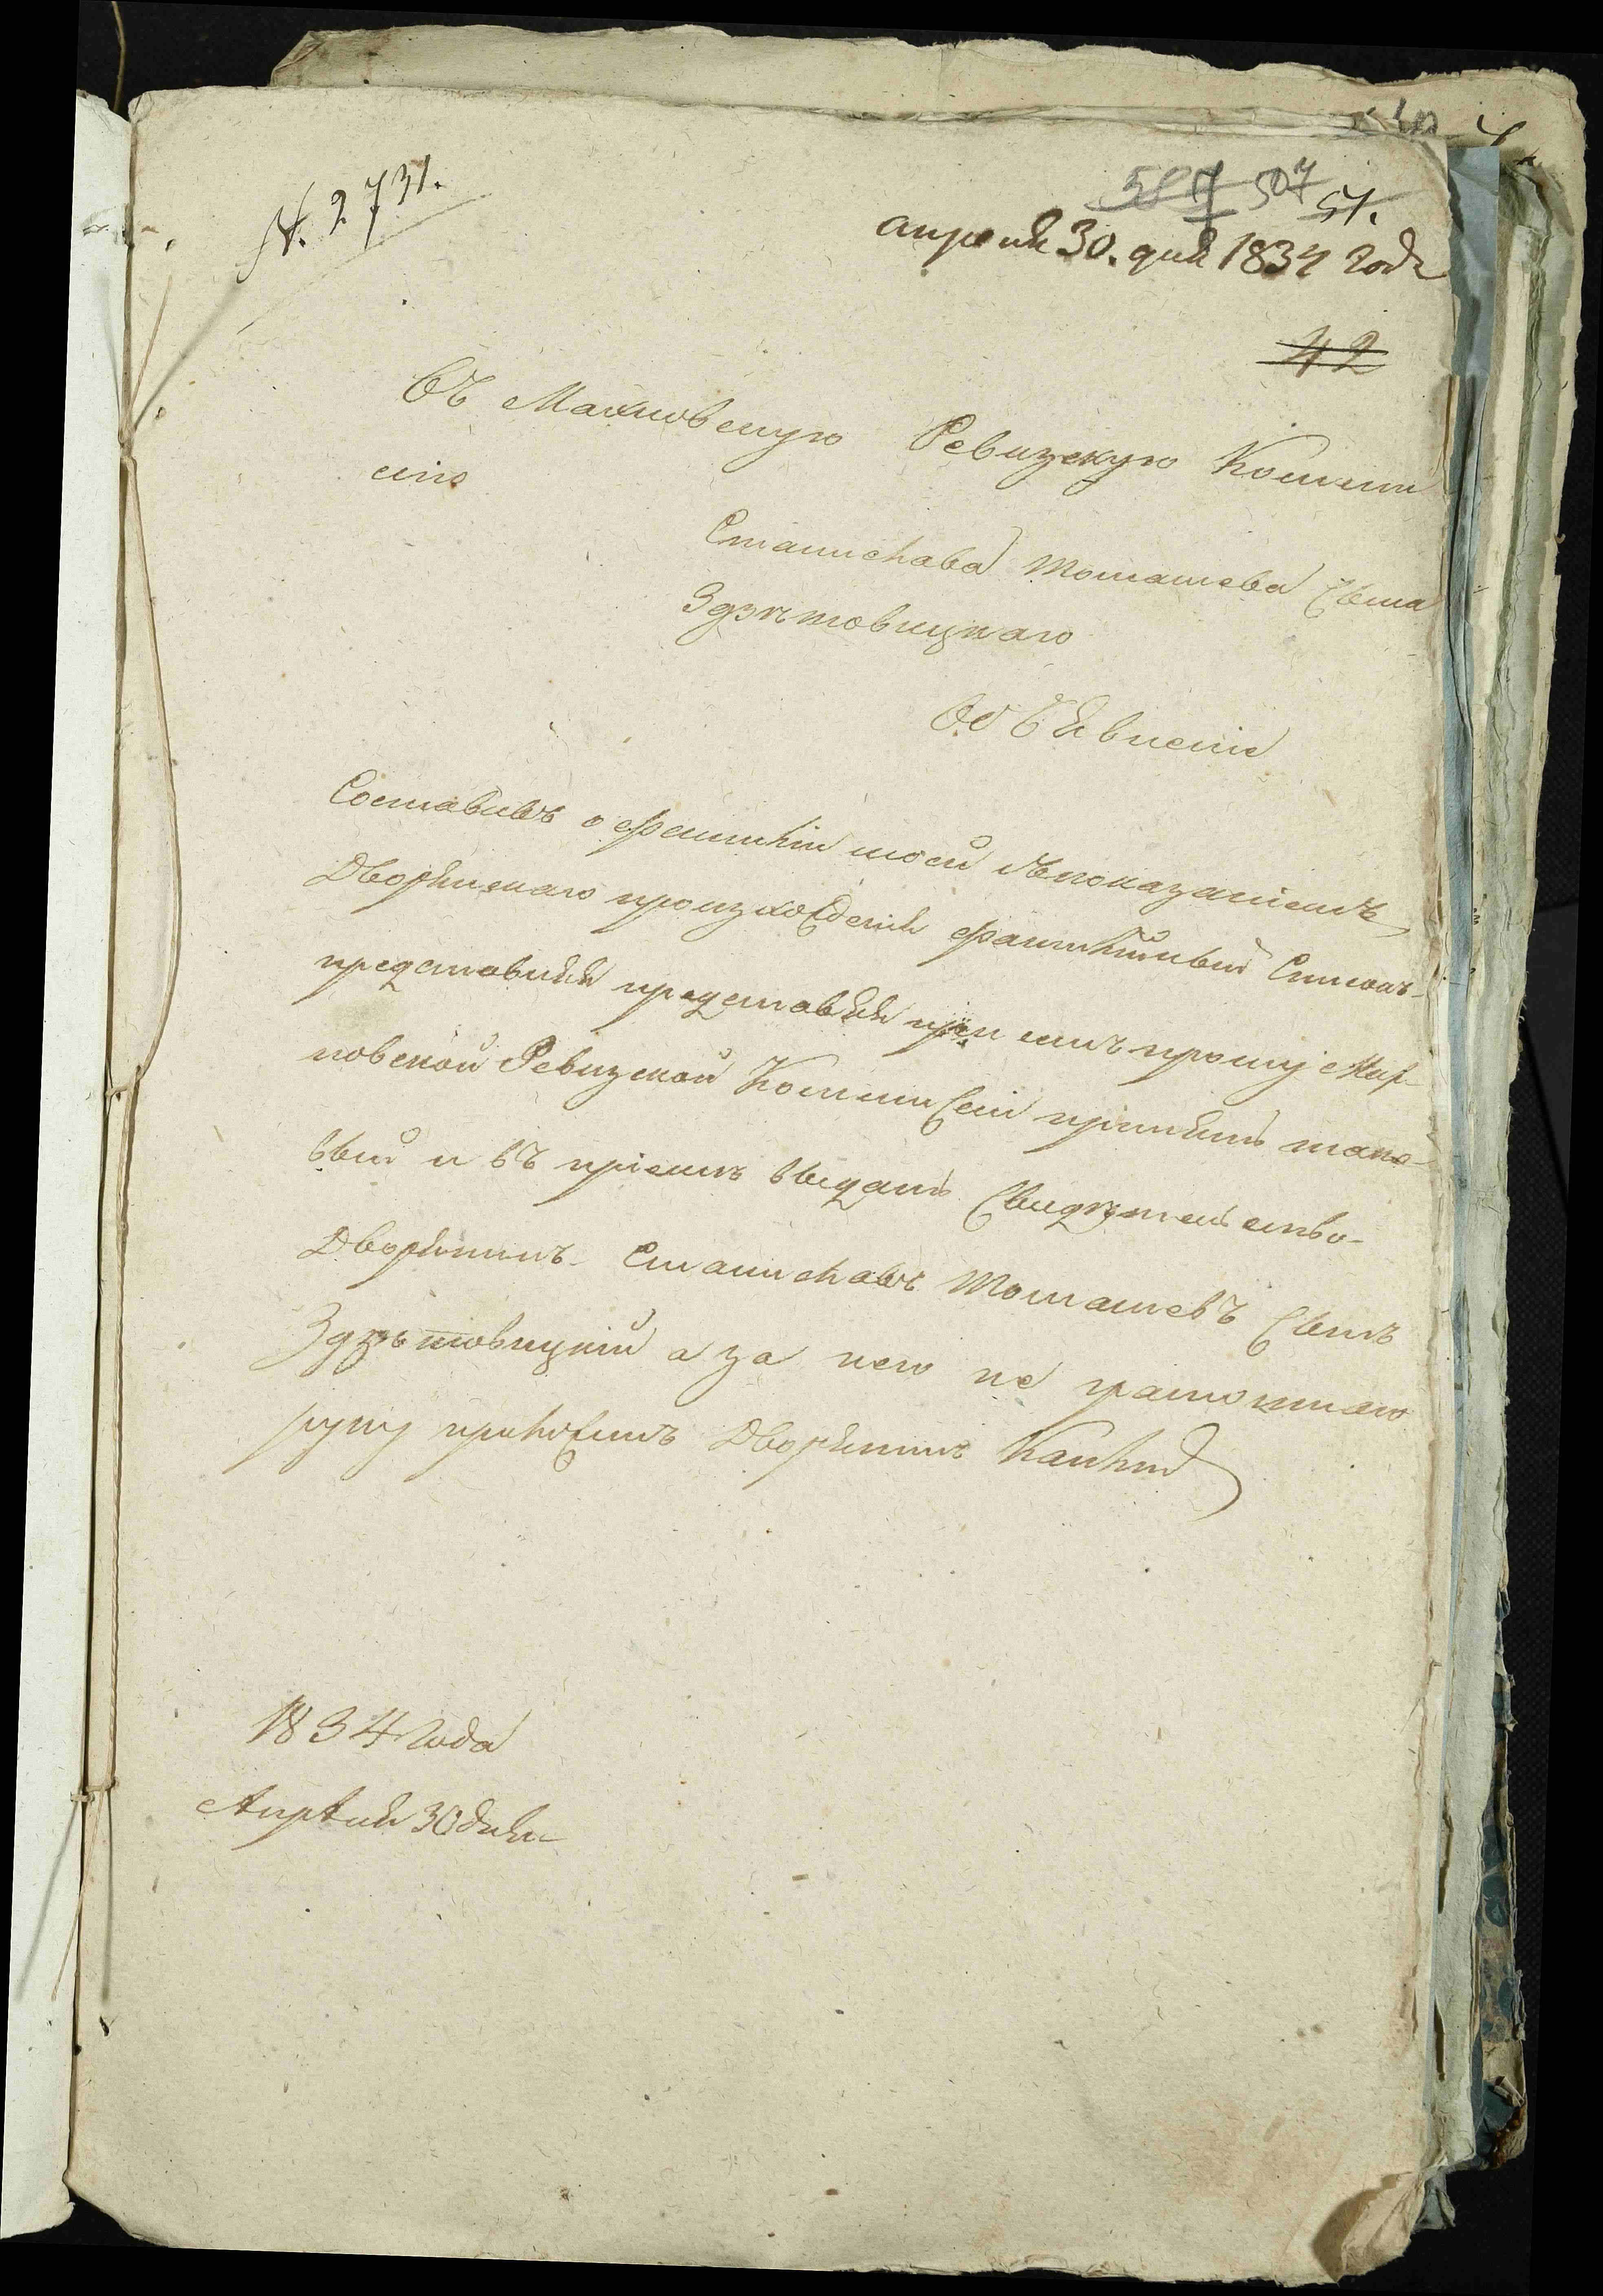 N. 2731.
507 507 51.
апреля 30. дня 1834 года
42
Въ Махновскую Ревизскую Комми
сию
Станислава Томашева Сына
Здзѣтовицкаго
Объявленіе
Составивъ о фамиліи моей съ показаніемъ
Дворянскаго произхожденія фамилійный Списокъ
представляя при семъ прошу Мах-
новской Ревизской Коммиссіи принять тако-
вый и въ пріемѣ выдать Свидѣтельство-
Дворянинъ Станиславъ Томашевъ Сынъ
Здзѣтовицкій а за него не грамотнаго
руку приложилъ Дворянинъ
1834 года
Апрѣля 30 дня